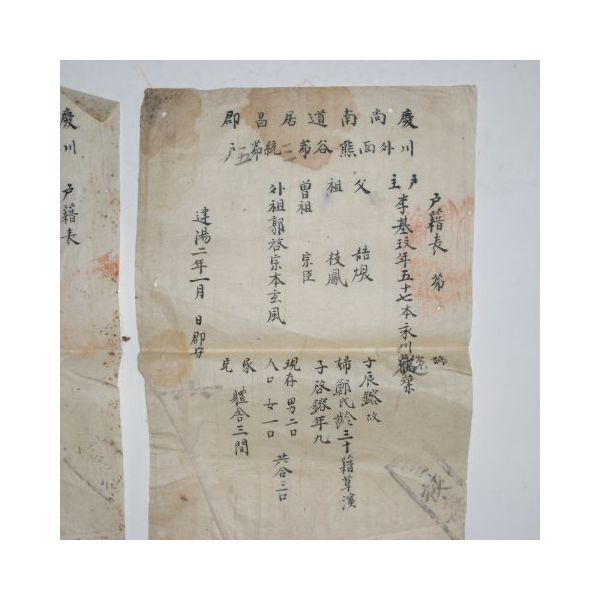 戶籍表 第 號
慶尙南道居昌郡
川外面熊谷第二統第五戶
戶主 李基玟年五十七本永川
父 喆煥
祖 枝鳳
曾祖 宗臣
外祖郭啓宗本玄風
建陽二年一月 日郡守
子辰鎔故
婦鄭氏齡三十籍草溪
子啓鎔年九
現存 男二口 共合三口
人口 女一口
家 體舍三間
宅
慶
川 戶籍表